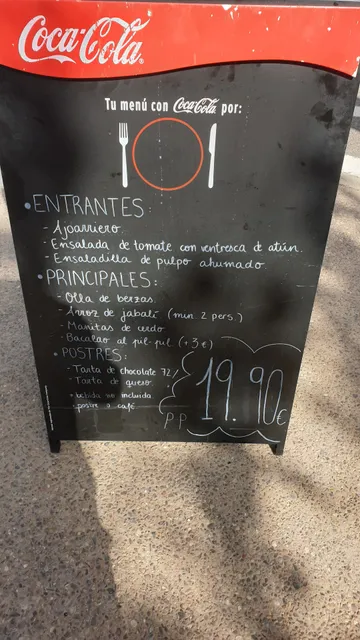 Coca-Cola
Tu menú con Coca-Cola por:
• ENTRANTES:
- Ajoarriero.
- Ensalada de tomate con ventresca de atún.
- Ensaladilla de pulpo ahumado.
• PRINCIPALES:
- Olla de berzas.
- Arroz de jabalí (min. 2 pers.)
- Manitas de cerdo
- Bacalao al pil-pil (+3€)
• POSTRES:
- Tarta de chocolate 72%
- Tarta de queso
+ bebida no incluida
- postre o café
19.90€
p.p.